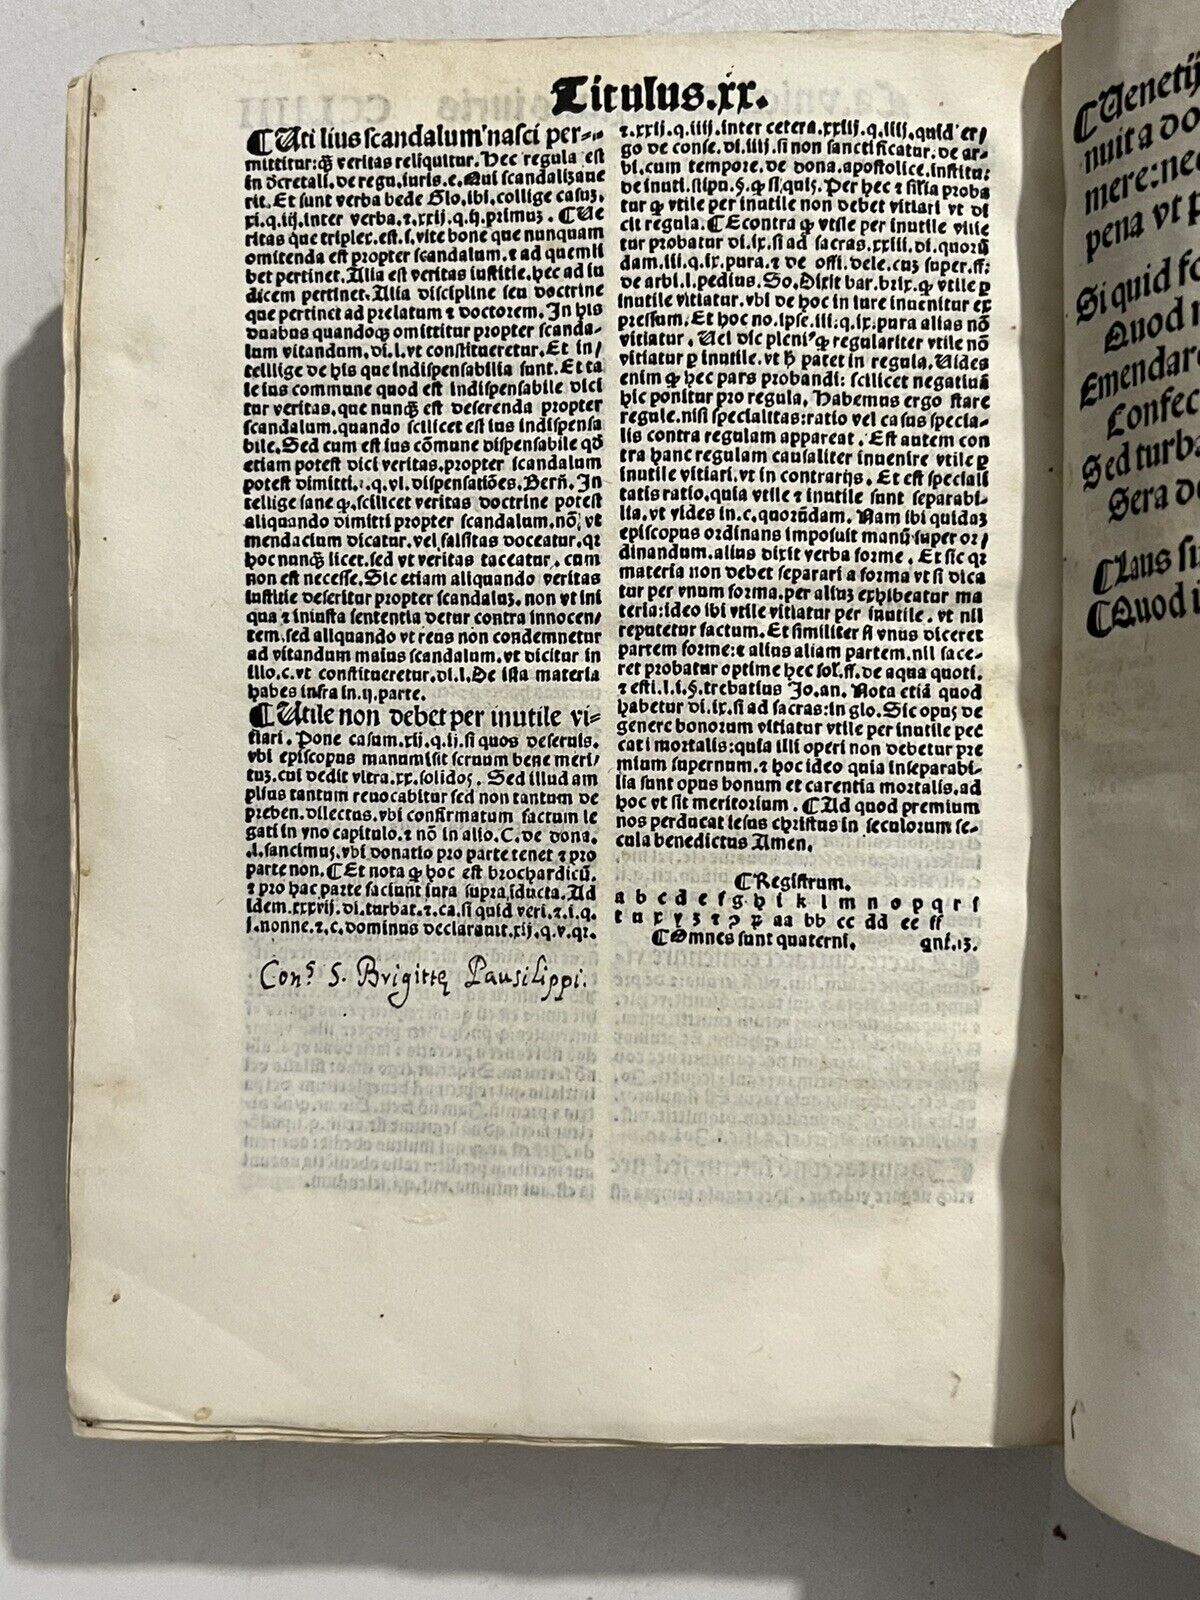 Titulus.xx.
¶Uti lius scandalum nasci per-
mittitur:qȝ veritas reliquitur. Hec regula est
in decretali. de regu. iuris. c. Qui scandalizaue
rit. Et sunt verba bede Glo. ibi. collige casuȝ.
xi. q. iij. inter verba. ⁊ xxij. q. ij. primuȝ. ¶Ue
ritas que triplex. est. s. vite bone que nunquam
omittenda est propter scandalum. ⁊ ad quemli
bet pertinet. Alia est veritas iustitie. hec ad iu
dicem pertinet. Alia discipline seu doctrine
que pertinet ad prelatum ⁊ doctorem. In his
duabus quandoqȝ omittitur propter scanda-
lum vitandum. di. l. vt constitueretur. Et in/
tellige de his que indispensabilia sunt. Et ta
le ius commune quod est indispensabile dici
tur veritas. que nunqȝ est deserenda propter
scandalum. quando scilicet est ius indispensa
bile. Sed cum est ius cōmune dispensabile qđ
etiam potest dici veritas. propter scandalum
potest dimitti. i. q. vi. dispensatiōes. Berñ. In
tellige sane q. scilicet veritas doctrine potest
aliquando dimitti propter scandalum. nō vt
mendacium dicatur. vel falsitas doceatur. qr
hoc nunqȝ licet. sed vt veritas taceatur. cum
non est necesse. Sic etiam aliquando veritas
iustitie deseritur propter scandaluȝ. non vt ini
qua ⁊ iniusta sententia detur contra innocen/
tem. sed aliquando vt reus non condemnetur
ad vitandum maius scandalum. vt dicitur in
illo. c. vt constitueretur. di. l. De ista materia
habes infra in. ij. parte.
¶Utile non debet per inutile vi-
tiari. Pone casum. xij. q. ij. si quos deseruis.
vbi episcopus manumisit seruum bene meri/
tuȝ. cui dedit vltra. xx. solidos. Sed illud am
plius tantum reuocabitur sed non tantum de
preben. dilectus. vbi confirmatum factum le
gati in vno capitulo. ⁊ nō in alio. C. de dona.
l. sancimus. vbi donatio pro parte tenet ⁊ pro
parte non. ¶Et nota q hoc est brochardicū.
⁊ pro hac parte faciunt iura supra inducta. Ad
idem. xxxvij. di. turbat. ⁊. ca. si quid veri. ⁊ i. q.
i. nonne. ⁊. c. dominus declarauit. xij. q. v. qr.
Conˢ S. Brigittę Pausilippi.
⁊. xxij. q. iiij. inter cetera. xxij. q. iiij. quid er/
go de conse. di. iiij. si non sanctificatur. de ar-
bi. cum tempore. de dona. apostolice. institu:
de inuti. stipu. §. q si quis. Per hec ⁊ silia proba
tur q vtile per inutile non debet vitiari vt di
cit regula. ¶Econtra q vtile per inutile vitie
tur probatur di. ix. si ad sacras. xxiii. di. quorū
dam. iii. q. ix. pura. ⁊ de offi. dele. cuȝ super. ff:
de arbi. l. pedius. So. Dixit bar. brix. q vtile p
inutile vitiatur. vbi de hoc in iure inuenitur ex
pressum. Et hoc no. ipse. iii. q. ix. pura alias nō
vitiatur. Uel dic pleni' q regulariter vtile nō
vitiatur p inutile. vt h patet in regula. Uides
enim q hec pars probandi: scilicet negatiuā
hic ponitur pro regula. Habemus ergo stare
regule. nisi specialitas: ratio vel casus specia-
lis contra regulam appareat. Est autem con
tra hanc regulam causaliter inuenire vtile p
inutile vitiari. vt in contrarijs. Et est speciali
tatis ratio. quia vtile ⁊ inutile sunt separabi-
lia. vt vides in. c. quorūdam. Nam ibi quidaȝ
episcopus ordinans imposuit manū super or/
dinandum. alius dixit verba forme. Et sic qr
materia non debet separari a forma vt si dica
tur per vnum forma. per aliuȝ exhibeatur ma
teria: ideo ibi vtile vitiatur per inutile. vt nil
reputetur factum. Et similiter si vnus diceret
partem forme: ⁊ alius aliam partem. nil face-
ret probatur optime hec sol. ff. de aqua quoti.
⁊ esti. l. i. §. trebatius Jo. an. Nota etiā quod
habetur di. ix. si ad sacras: in glo. Sic opus de
genere bonorum vitiatur vtile per inutile pec
cati mortalis: quia illi operi non debetur pre
mium supernum. ⁊ hoc ideo quia inseparabi-
lia sunt opus bonum et carentia mortalis. ad
hoc vt sit meritorium. ¶Ad quod premium
nos perducat iesus christus in seculorum se-
cula benedictus Amen.
¶Registrum.
a b c d e f g h i k l m n o p q r s
t u x y z ⁊ ɔ ꝝ aa bb cc dd ee ff
¶Omnes sunt quaterni. qnf. 13.
¶Uenetij
nuit a do
mere: nec
pena vt p
Si quid fo
Quod
Emendare
Confec
Sed turba
Sera de
¶Laus
¶Quod